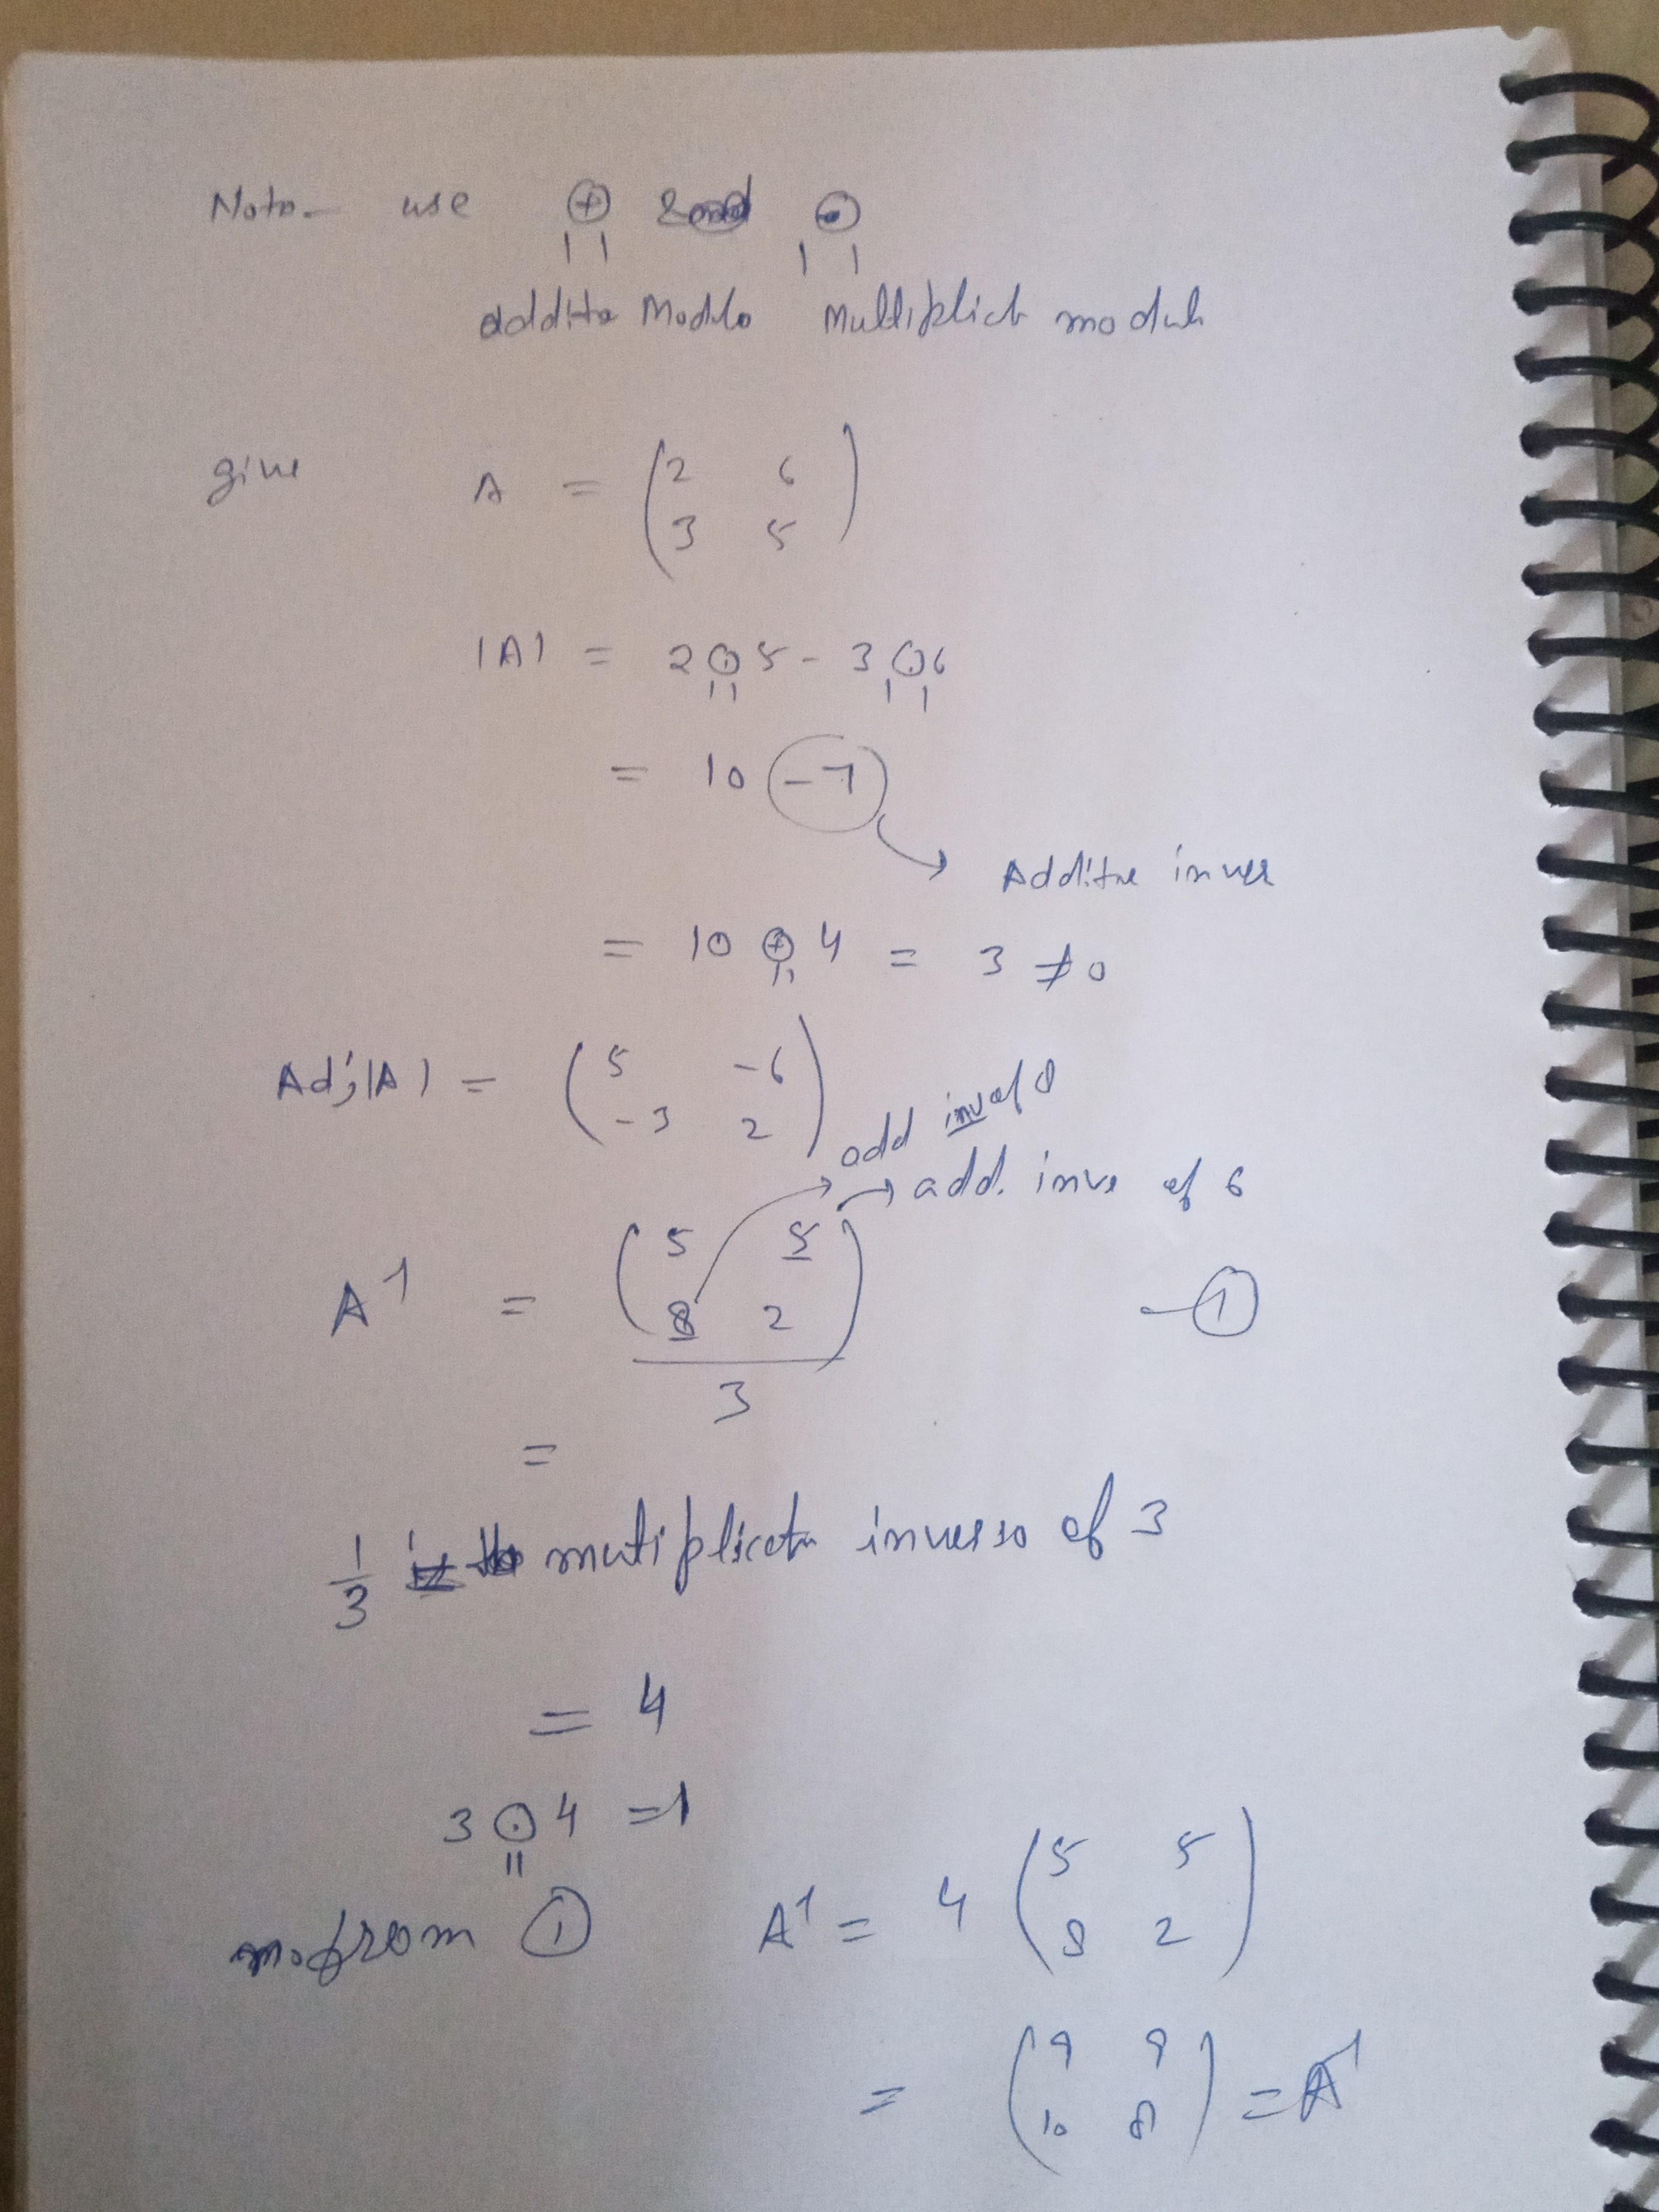 Note- use ⊕ and ⊙
11 11
additve Modlo Multiplict modul
give A = (2 6
3 5)
|A| = 2⊙₁₁5 - 3⊙₁₁6
= 10 -7
Additve inver
= 10 ⊕₁₁ 4 = 3 ≠0
Adj|A) = (5 -6
-3 2)
add inv of 8
add. inve of 6
A⁻¹ = (5 5
8 2) -①
3
=
1/3 multiplicatn inverse of 3
= 4
3⊙₁₁4 =1
from ① A⁻¹ = 4 (5 5
8 2)
= (9 9
10 8) = A⁻¹